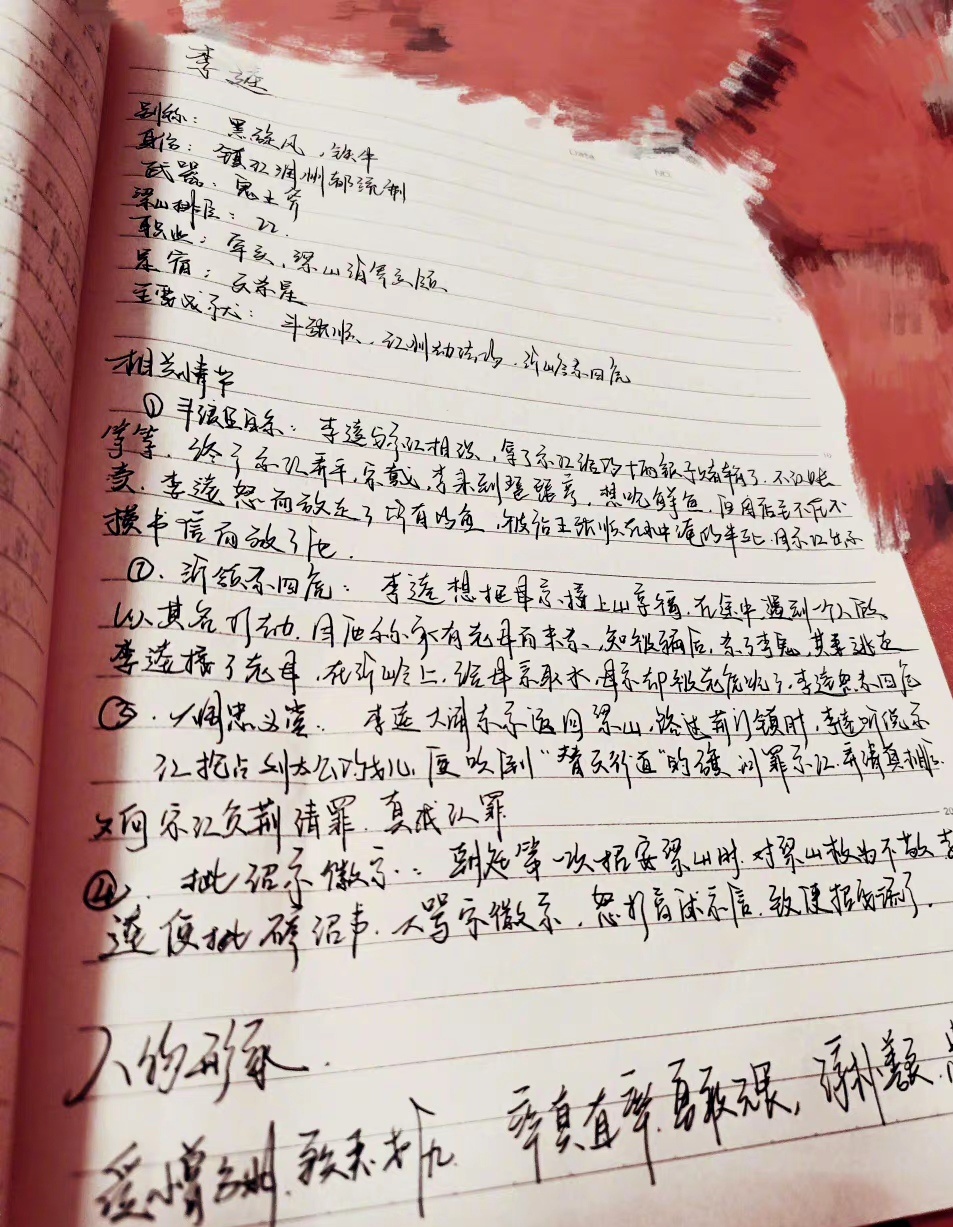 李逵
别称：黑旋风，铁牛
身份：镇江润州都统制
武器：鬼王斧
梁山排位：22.
职业：军头，梁山步军头领
星宿：天杀星
主要战事：斗张顺、江州劫法场、沂岭杀四虎
相关情节
① 斗浪里白条：李逵与宋江相识，拿了宋江给的十两银子赌输了，不认账
等等，终了宋江来平，宋戴，李来到琵琶亭，想吃鲜鱼，因店主不在不
卖，李逵怒而放走了所有的鱼，被张顺在水中淹的半死，因宋江出示
横书信而放了他.
②. 沂领杀四虎：李逵想把母亲接上山享福，在途中遇到一个人假
以其名行劫，因他称家有老母而未杀，知被骗后，杀了李鬼，其妻逃走
李逵接了老母，在沂岭上，给母亲取水，母亲却被老虎吃了，李逵怒杀四虎
③. 大闹忠义堂. 李逵大闹东京返回梁山，路过荆门镇时，李逵听说宋
江抢占刘太公的女儿，便砍倒“替天行道”的旗，问罪宋江，弄清真相
又向宋江负荆请罪，真成认罪
④. 扯诏骂徽宗：朝廷第一次招安梁山时，对梁山极为不敬，李
逵便扯碎诏书，大骂宋徽宗，怒打音读示信，致使招安
人物形象.
爱憎分明，率真直率，勇敢无畏，淳朴善良，